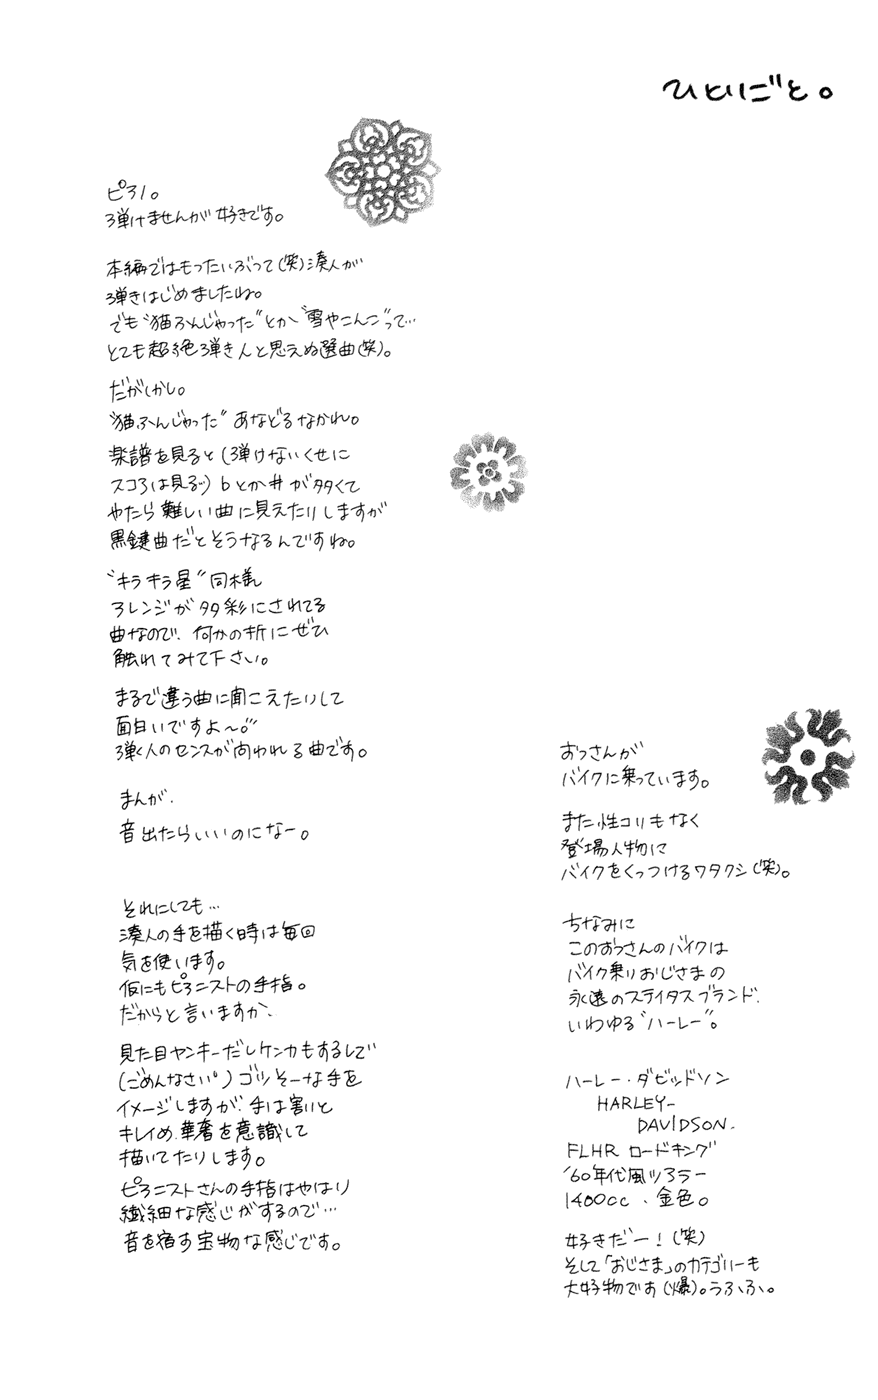 ひとりごと。
ピアノ。
弾けませんが好きです。
本編ではもったいぶって(笑)湊人が
弾きはじめましたね。
でも“猫ふんじゃった”とか“雪やこんこ”って…
とても超絶弾き人と思えぬ選曲(笑)。
だがしかし。
“猫ふんじゃった”あなどるなかれ。
楽譜を見ると(弾けないくせに
スコアは見るッ)♭とか#が多くて
やたら難しい曲に見えたりしますが
黒鍵曲だとそうなるんですね。
“キラキラ星”同様
アレンジが多彩にされてる
曲なので、何かの折にぜひ
触れてみて下さい。
まるで違う曲に聞こえたりして
面白いですよ〜。”
弾く人のセンスが問われる曲です。
まんが、
音出たらいいのになー。
それにしても…
湊人の手を描く時は毎回
気を使います。
仮にもピアニストの手指。
だからと言いますか、
見た目ヤンキーだしケンカもするしで
(ごめんなさい°)ゴツそーな手を
イメージしますが、手は割いと
キレイめ、華奢を意識して
描いてたりします。
ピアニストさんの手指はやはり
繊細な感じがするので…
音を宿す宝物な感じです。
おっさんが
バイクに乗っています。
また性コリもなく
登場人物に
バイクをくっつけるワタクシ(笑)。
ちなみに
このおっさんのバイクは
バイク乗りおじさまの
永遠のステイタスブランド、
いわゆる“ハーレー”。
ハーレー・ダビッドソン
HARLEY-
DAVIDSON.
FLHR ロードキング
'60年代風ツアラー
1400cc、金色。
好きだー!(笑)
そして「おじさま」のカテゴリーも
大好物です(爆)。うふふ。